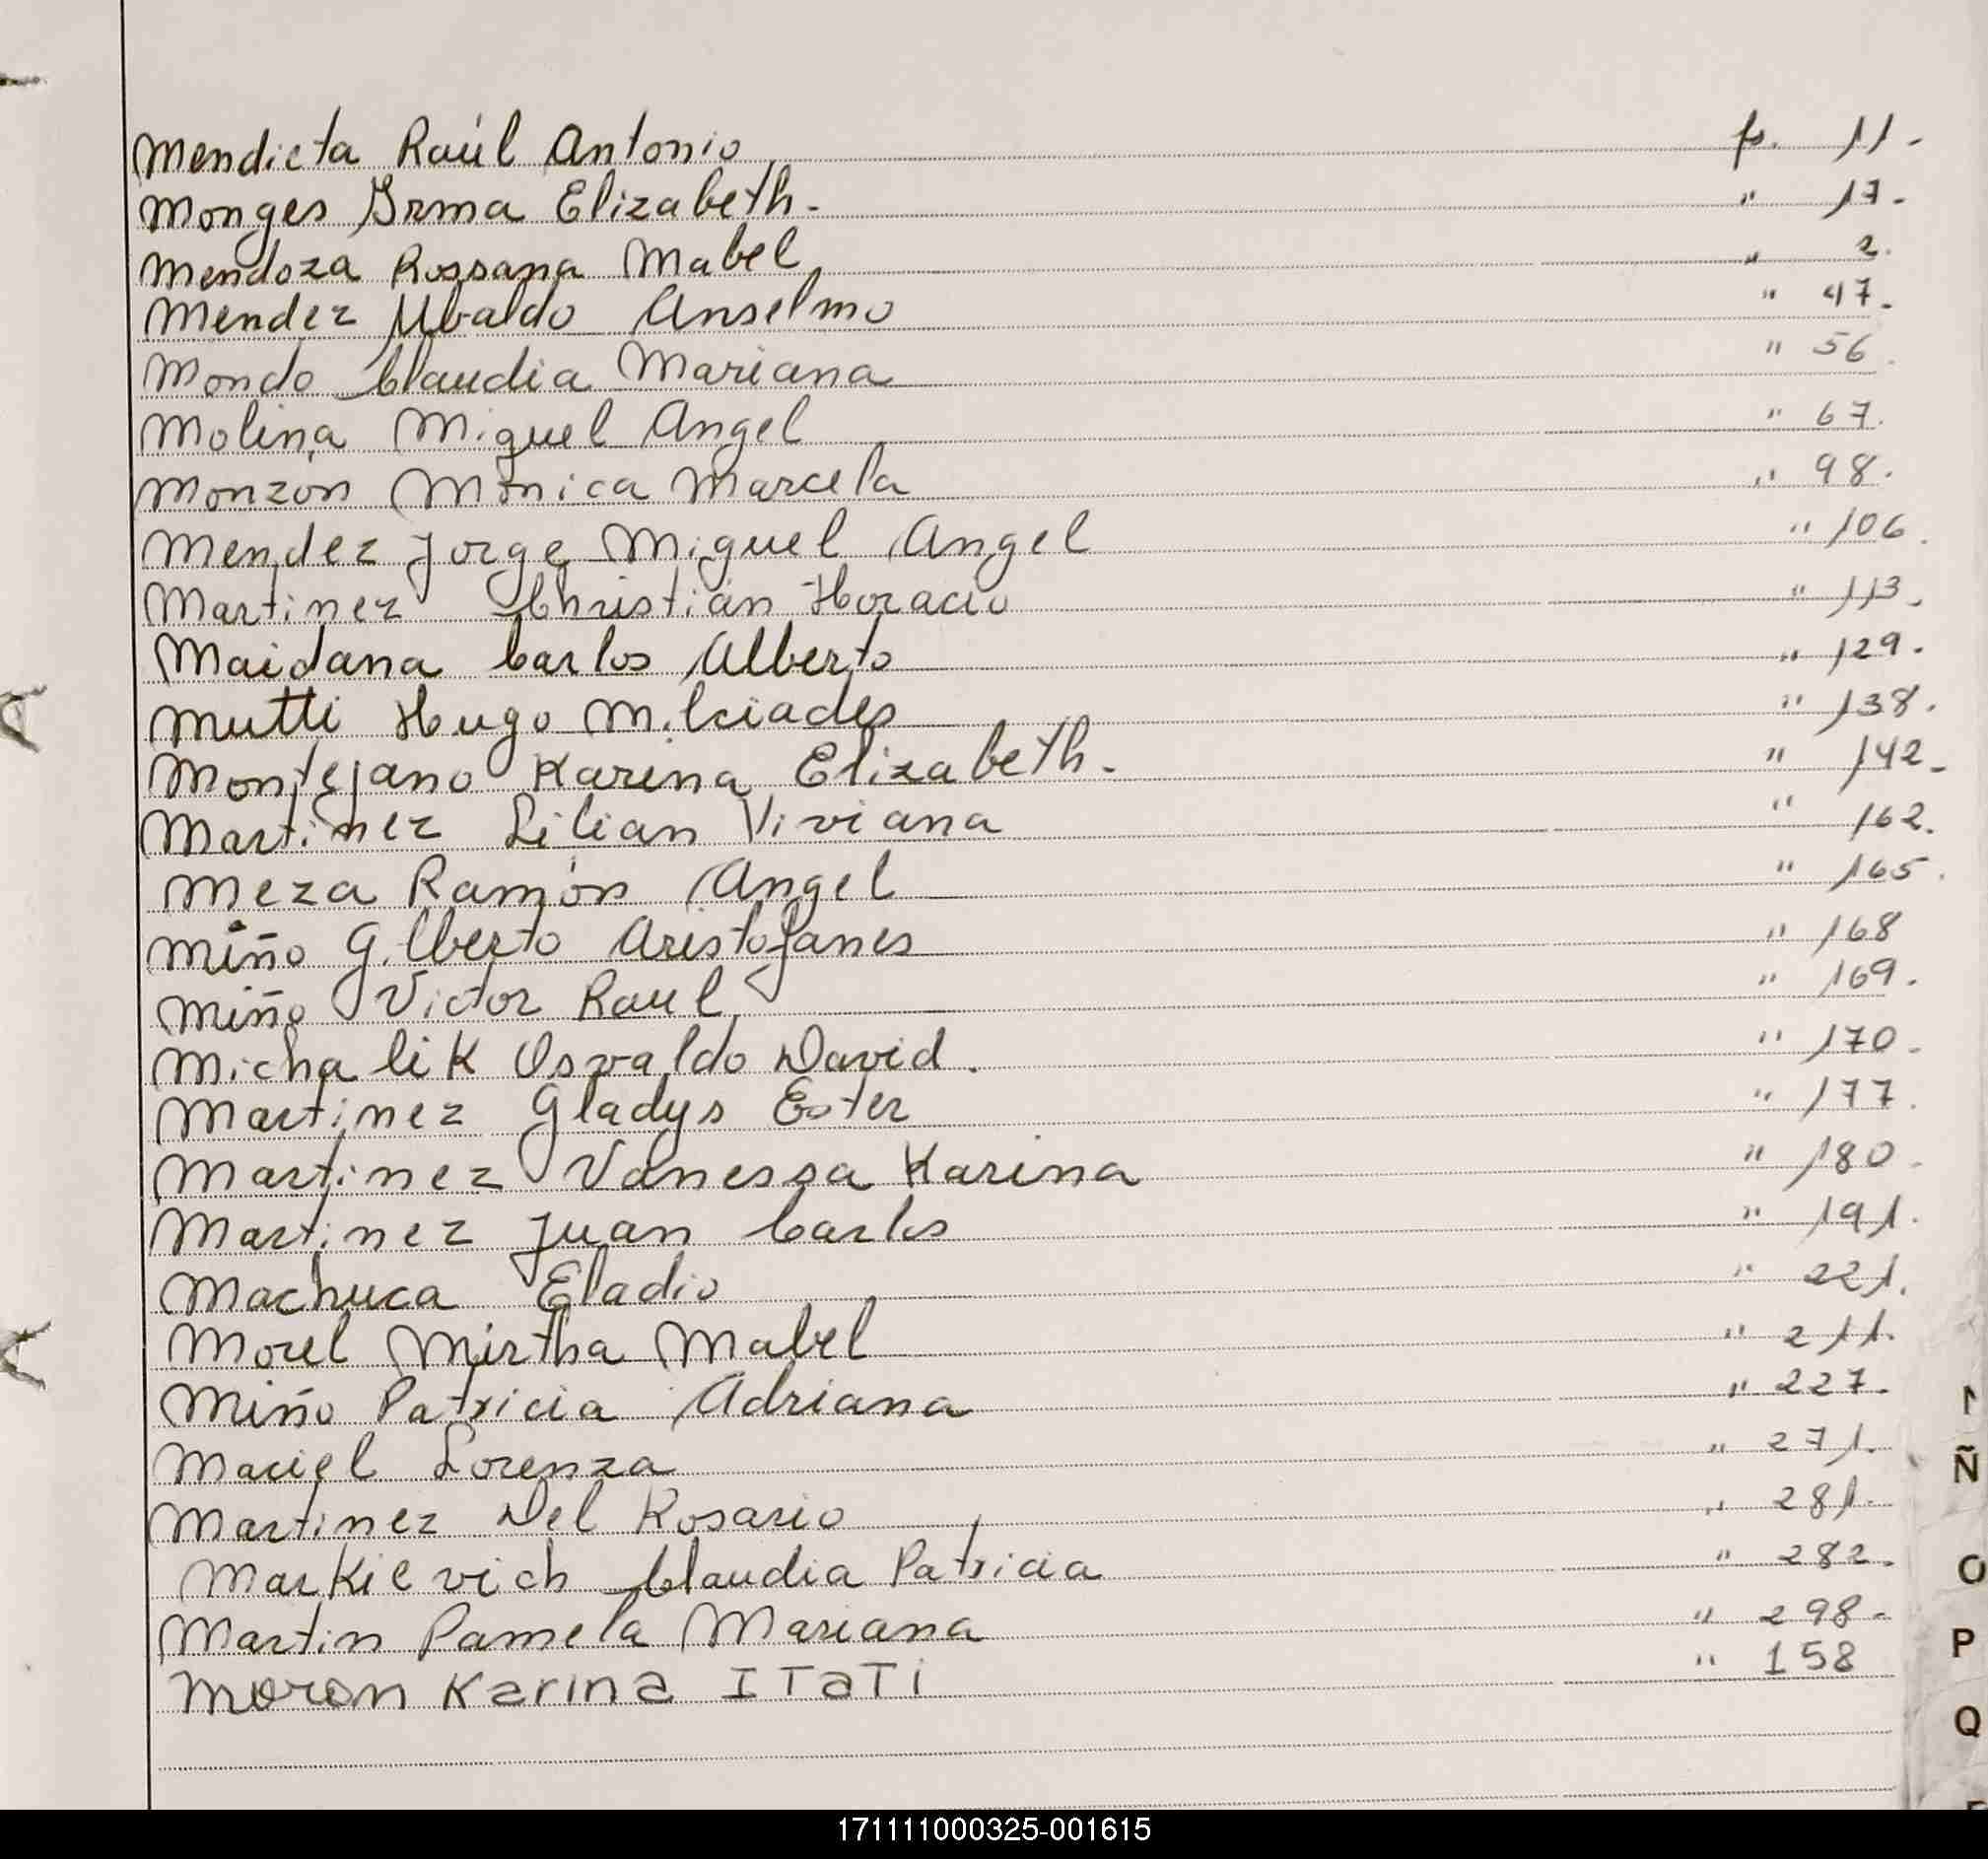 Mendieta Raúl Antonio p. 11.
Monges Irma Elizabeth. " 17.
Mendoza Rossana Mabel " 2.
Mendez Ubaldo Anselmo " 47.
Mondo Claudia Mariana " 56.
Molina Miguel Angel " 67.
Monzón Mónica Marcela " 98.
Mendez Jorge Miguel Angel " 106.
Martinez Christian Horacio " 113.
Maidana Carlos Alberto " 129.
Mutti Hugo Milciades " 138.
Montejano Karina Elizabeth. " 142.
Martinez Lilian Viviana " 162.
Meza Ramón Angel " 165.
Miño Gilberto Aristofanes " 168
Miño Victor Raul " 169.
Michalik Osvaldo David. " 170.
Martinez Gladys Ester " 177.
Martinez Vanessa Karina " 180.
Martinez Juan Carlos " 191.
Machuca Eladio " 221.
Morel Mirtha Mabel " 211.
Miño Patricia Adriana " 227.
Maciel Lorenza " 271.
Martinez Del Rosario " 281.
Markievich Claudia Patricia " 282.
Martin Pamela Mariana " 298.
Moron Karina ITATI " 158
Ñ
O
P
Q
171111000325-001615